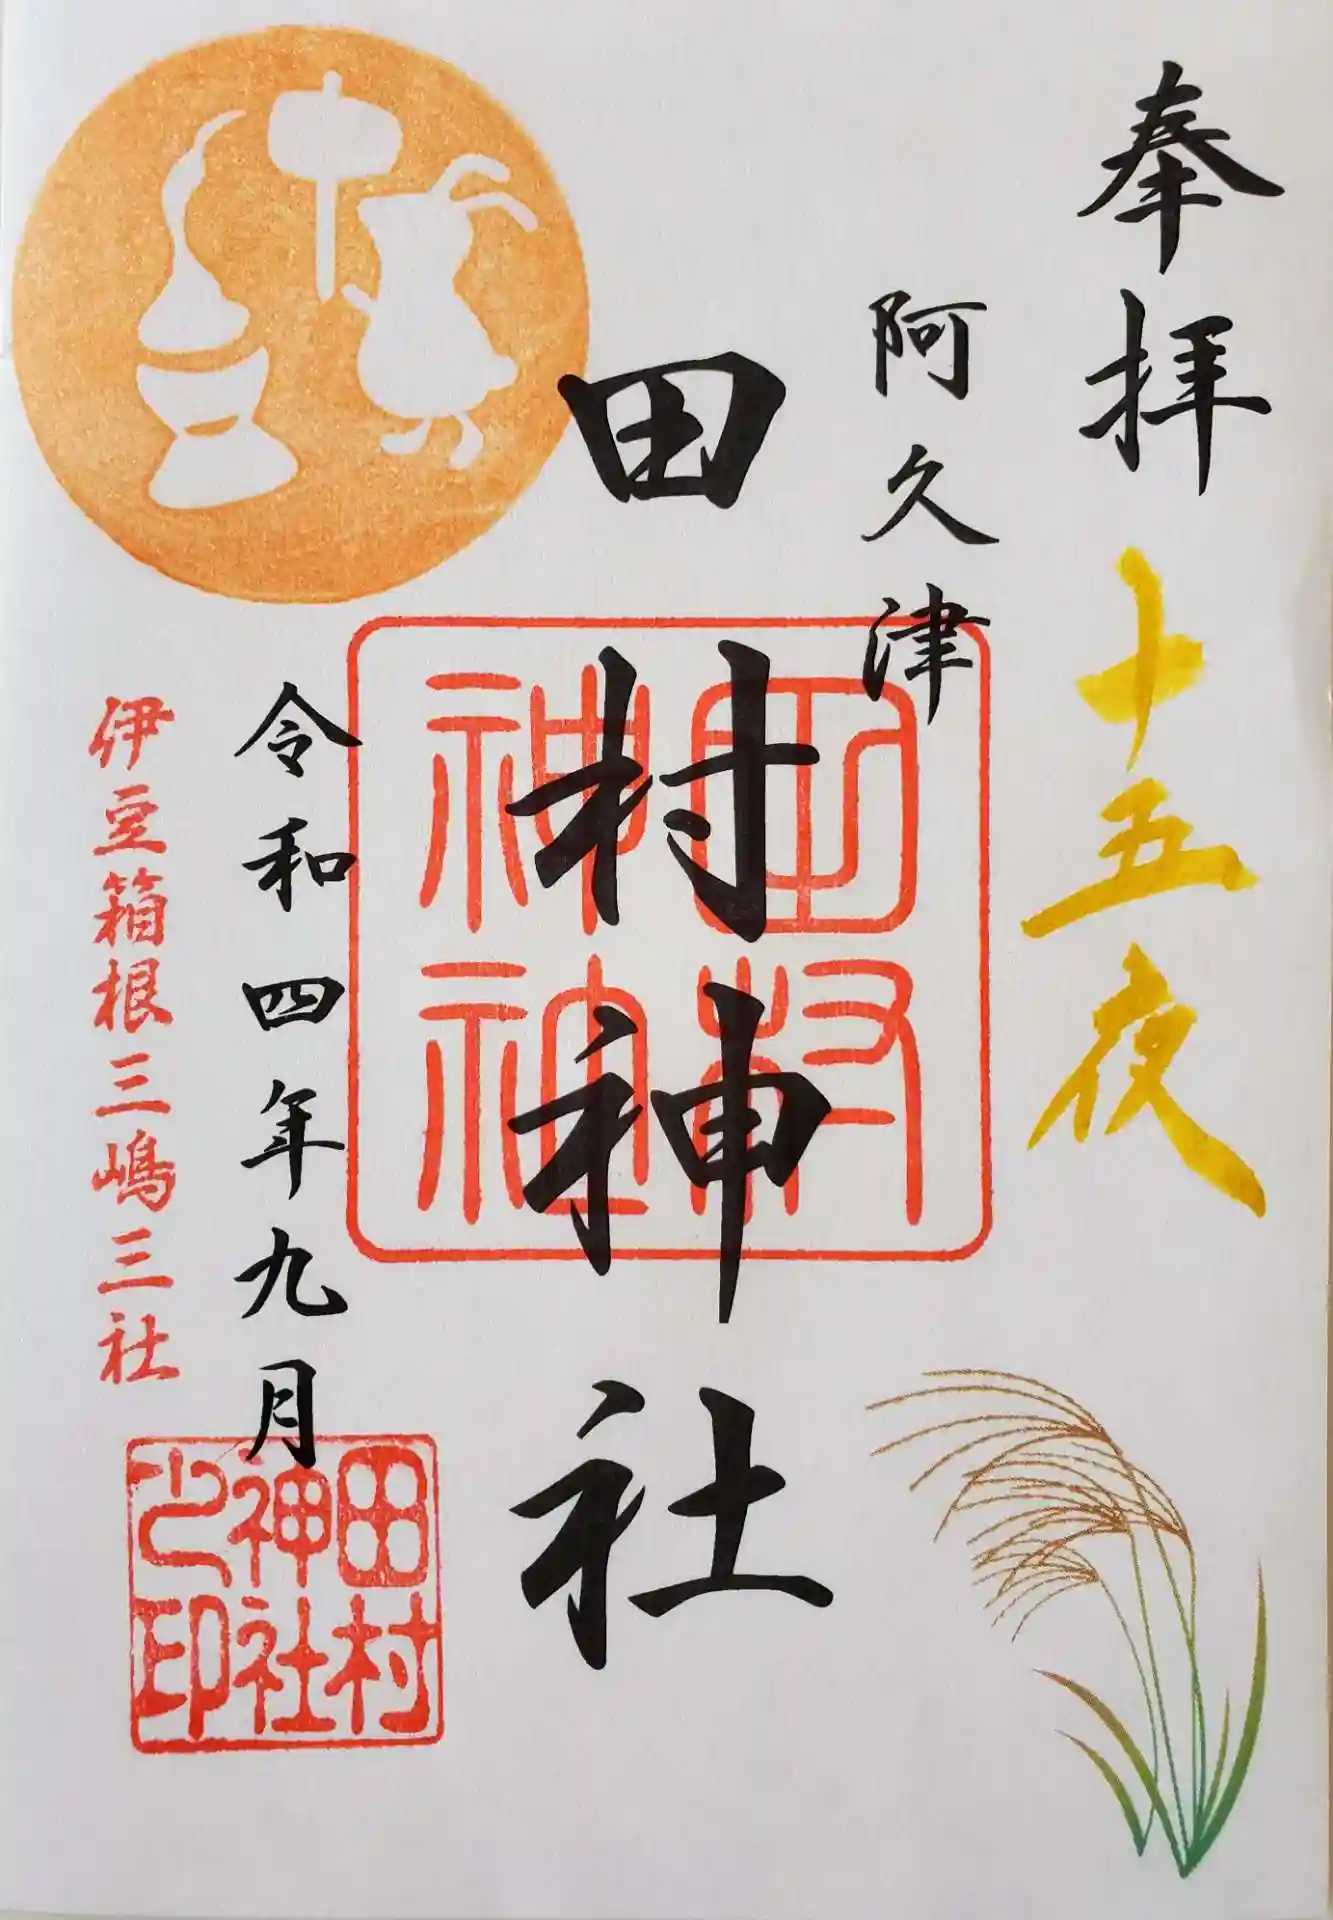 奉拝
十五夜
阿久津
田村神社
田村神社
令和四年九月
伊豆箱根三嶋三社
田村神社之印